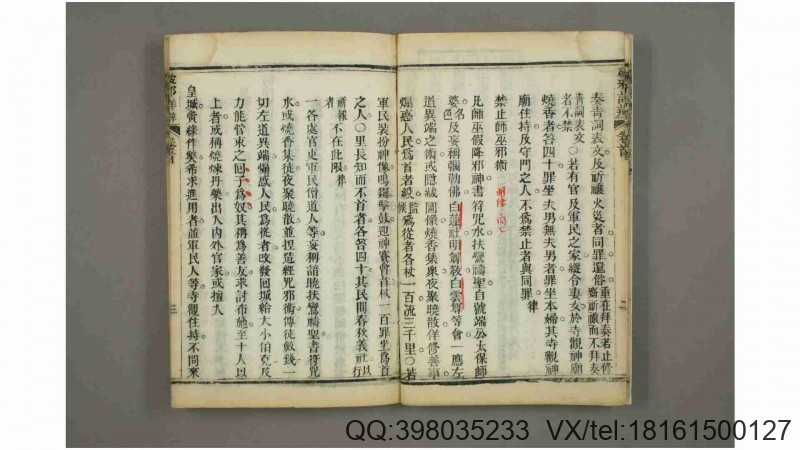 奏青詞表文及祈禳火災者同罪還俗重在拜奏若止修齋祈禳而不拜奏
青詞表文者不禁○若有官及軍民之家縱令妻女於寺觀神廟
燒香者笞四十罪坐夫男無夫男者罪坐本婦其寺觀神
廟住持及守門之人不為禁止者與同罪律
禁止師巫邪術
凡師巫假降邪神書符咒水扶鸞禱聖自號端公太保師
婆名色及妄稱彌勒佛白蓮社明尊教白雲宗等會一應左
道異端之術或隱藏圖像燒香集衆夜聚曉散佯修善事
煽惑人民為首者絞監候為從者各杖一百流三千里○若
軍民裝扮神像鳴鑼擊鼓迎神賽會者杖一百罪坐為首
之人○里長知而不首者各笞四十其民間春秋義社以行
祈報者不在此限律
一各處官吏軍民僧道人等妄稱諳曉扶鸞禱聖書符咒
水或燒香集徒夜聚曉散並捏造經咒邪術傳徒斂錢一
切左道異端煽惑人民為從者改發回城給大小伯克及
力能管束之回子為奴其稱為善友求討布施至十人以
上者或稱燒煉丹藥出入內外官家或擅入
皇城夤緣作弊希求進用者誰軍民人等寺觀住持不問來
二
三
QQ:398035233 VX/tel:18161500127